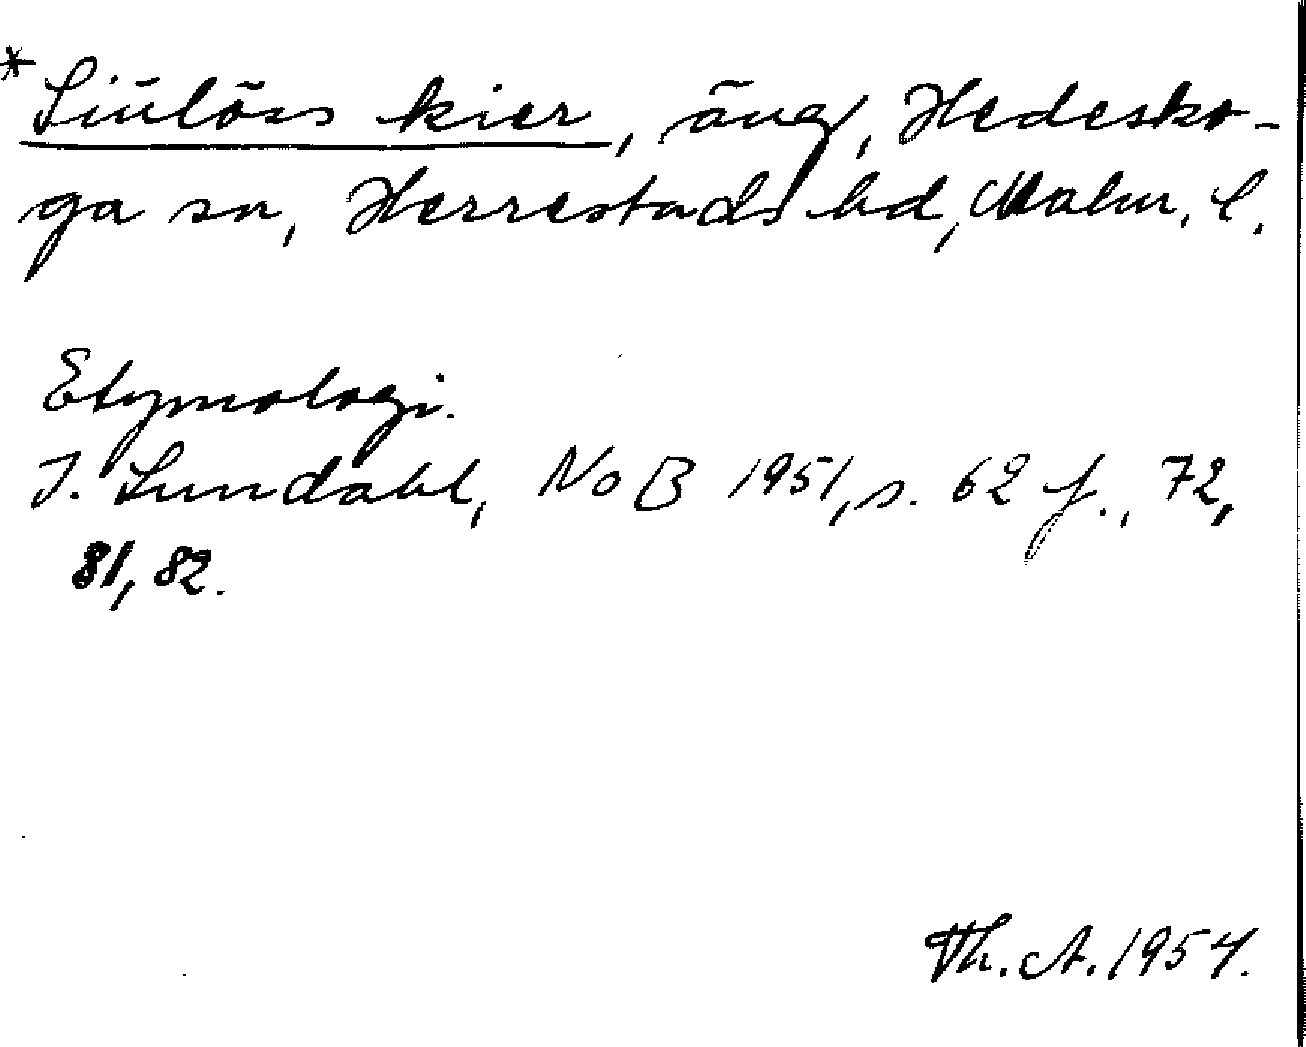 *Siulöss kier, äng, Hedesko-
ga sn, Herrestads hd, Malm. l.
Etymologi.
I. Lundahl, NoB 1951, s. 62 f., 72,
81, 82.
Th. A. 1954.